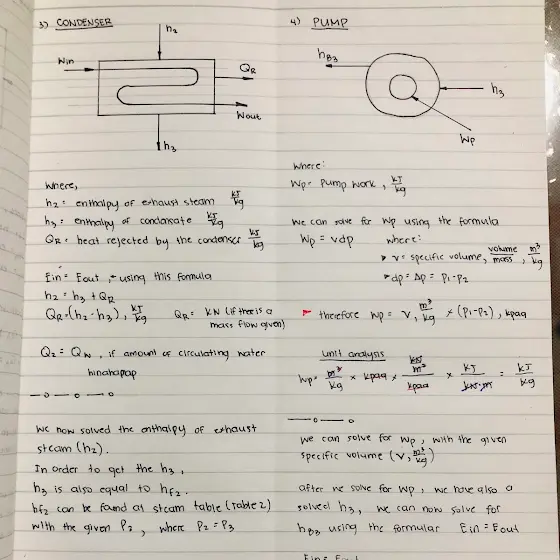 3) CONDENSER
h₂
Win
QR
Wout
h₃
Where,
h₂ = enthalpy of exhaust steam kJ/kg
h₃ = enthalpy of condensate kJ/kg
QR = heat rejected by the condenser kJ/kg
Ein = Eout, using this formula
h₂ = h₃ + QR
QR = (h₂ - h₃), kJ/kg QR = KW (if there is a
mass flow given)
Q₂ = QW, if amount of circulating water
hinahapap
—o—o—o—
We now solved the enthalpy of exhaust
steam (h₂).
In order to get the h₃,
h₃ is also equal to hf₂.
hf₂ can be found at steam table (Table 2)
with the given P₂, where P₂ = P₃
4) PUMP
hB3
h₃
Wp
Where:
Wp = Pump Work, kJ/kg
We can solve for Wp using the formula
Wp = vdp where:
v = specific volume, volume/mass, m³/kg
dp = Δp = P₁-P₂
therefore Wp = v, m³/kg × (P₁-P₂), kpaa
unit analysis
Wp = m³/kg × kpaa × kN/m²/kpaa × kJ/kN·m = kJ/kg
—o—o—
We can solve for Wp, with the given
specific volume (v, m³/kg)
after we solve for Wp, we have also a
solved h₃, we can now solve for
hB3 using the formular Ein = Eout
Ein = Eout